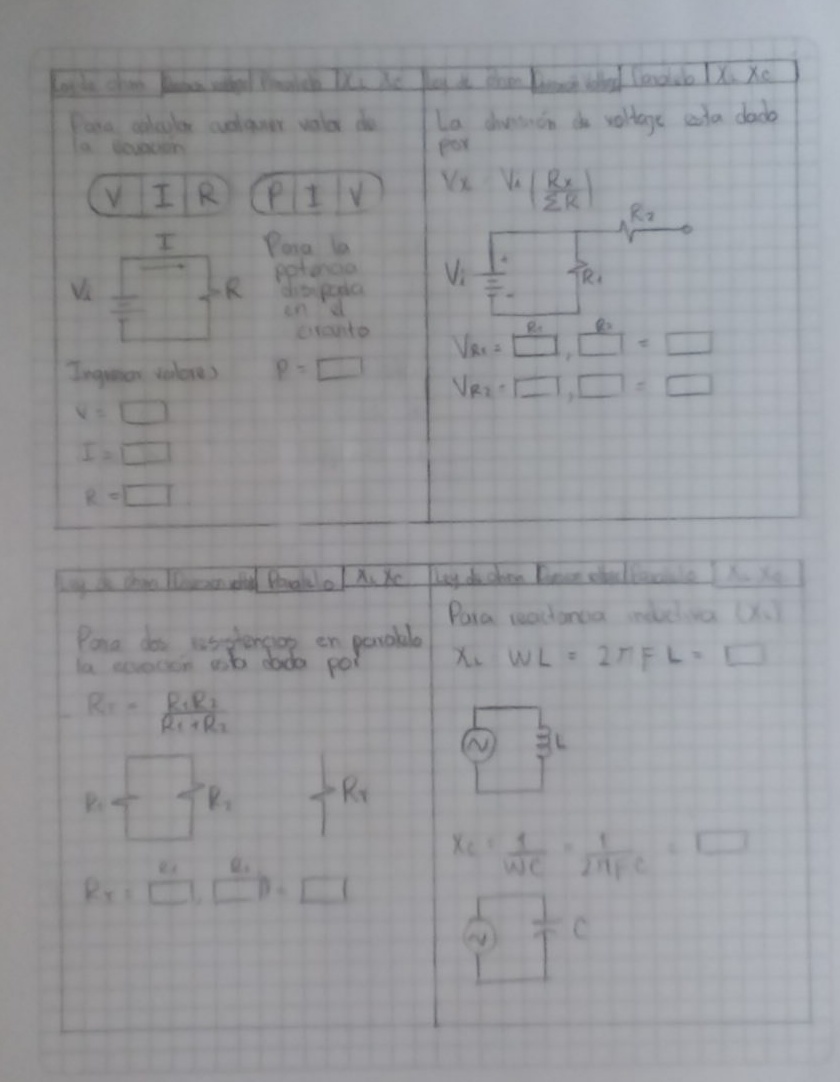 Ley de ohm | Division voltaje | Paralelo | XL Xc
Para calcular cualquier valor de
la ecuación
V | I | R
P | I | V
I
Vi
R
Para la
potencia
disipada
en el
circuito
Ingresar valores
P =
V =
I =
R =
Ley de ohm | Division voltaje | Paralelo | XL Xc
La división de voltaje esta dado
por
Vx Vi (Rx / ΣR)
R2
Vi
+
-
R1
R1 R2
VR1 = , =
VR2 = , =
Ley de ohm | Division voltaje | Paralelo | XL Xc
Para dos resistencias en paralelo
la ecuación esta dada por
RT = R1R2 / R1+R2
R1
R2
RT
RT = , =
Ley de ohm | Division voltaje | Paralelo | XL Xc
Para reactancia inductiva (XL)
XL WL = 2πFL =
L
Xc = 1 / WC = 1 / 2πFC =
C